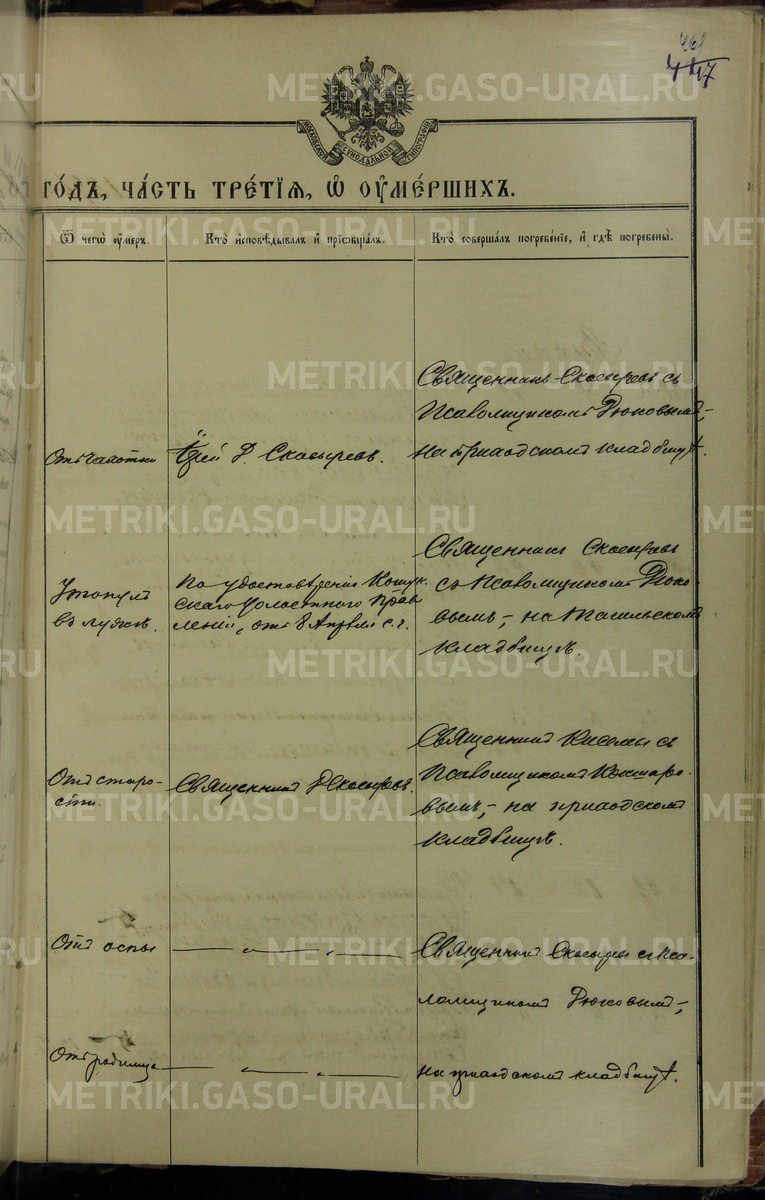 461
447
МОСКОВСКОЙ СѴНОДАЛЬНОЙ ТИПОГРАФІИ
го́дъ, ча́сть тре́тїѧ, ѡ҆ оу҆ме́ршихъ.
Ѿ чегѡ̀ оу҆́меръ.
Кто̀ и҆сповѣ́дывалъ и҆ прїѡбща́лъ.
Кто̀ соверша́лъ погребе́нїе, и҆ гдѣ̀ погребены̀.
Отъ чахотки
Іерей Р. Скосыревъ.
Священникъ Скосыревъ съ
Псаломщикомъ Рюковымъ,
на приходскомъ кладбищѣ.
Утонулъ
въ лужѣ.
По удостовѣренію Кошук-
скаго волостного Прав
ленія, отъ 8 Апрѣля с. г.
Священникъ Скосыревъ
съ Псаломщикомъ Рюко-
вымъ, на Тагильскомъ
кладбищѣ.
Отъ старо-
сти.
Священникъ Р Скосыревъ.
Священникъ съ
Псаломщикомъ
вымъ, на приходскомъ
кладбищѣ.
Отъ оспы
— „ — „ —
Священникъ Скосыревъ съ Пса-
ломщикомъ Рюковымъ,
Отъ родимца
— „ — „ —
на приходскомъ кладбищѣ.
METRIKI.GASO-URAL.RU